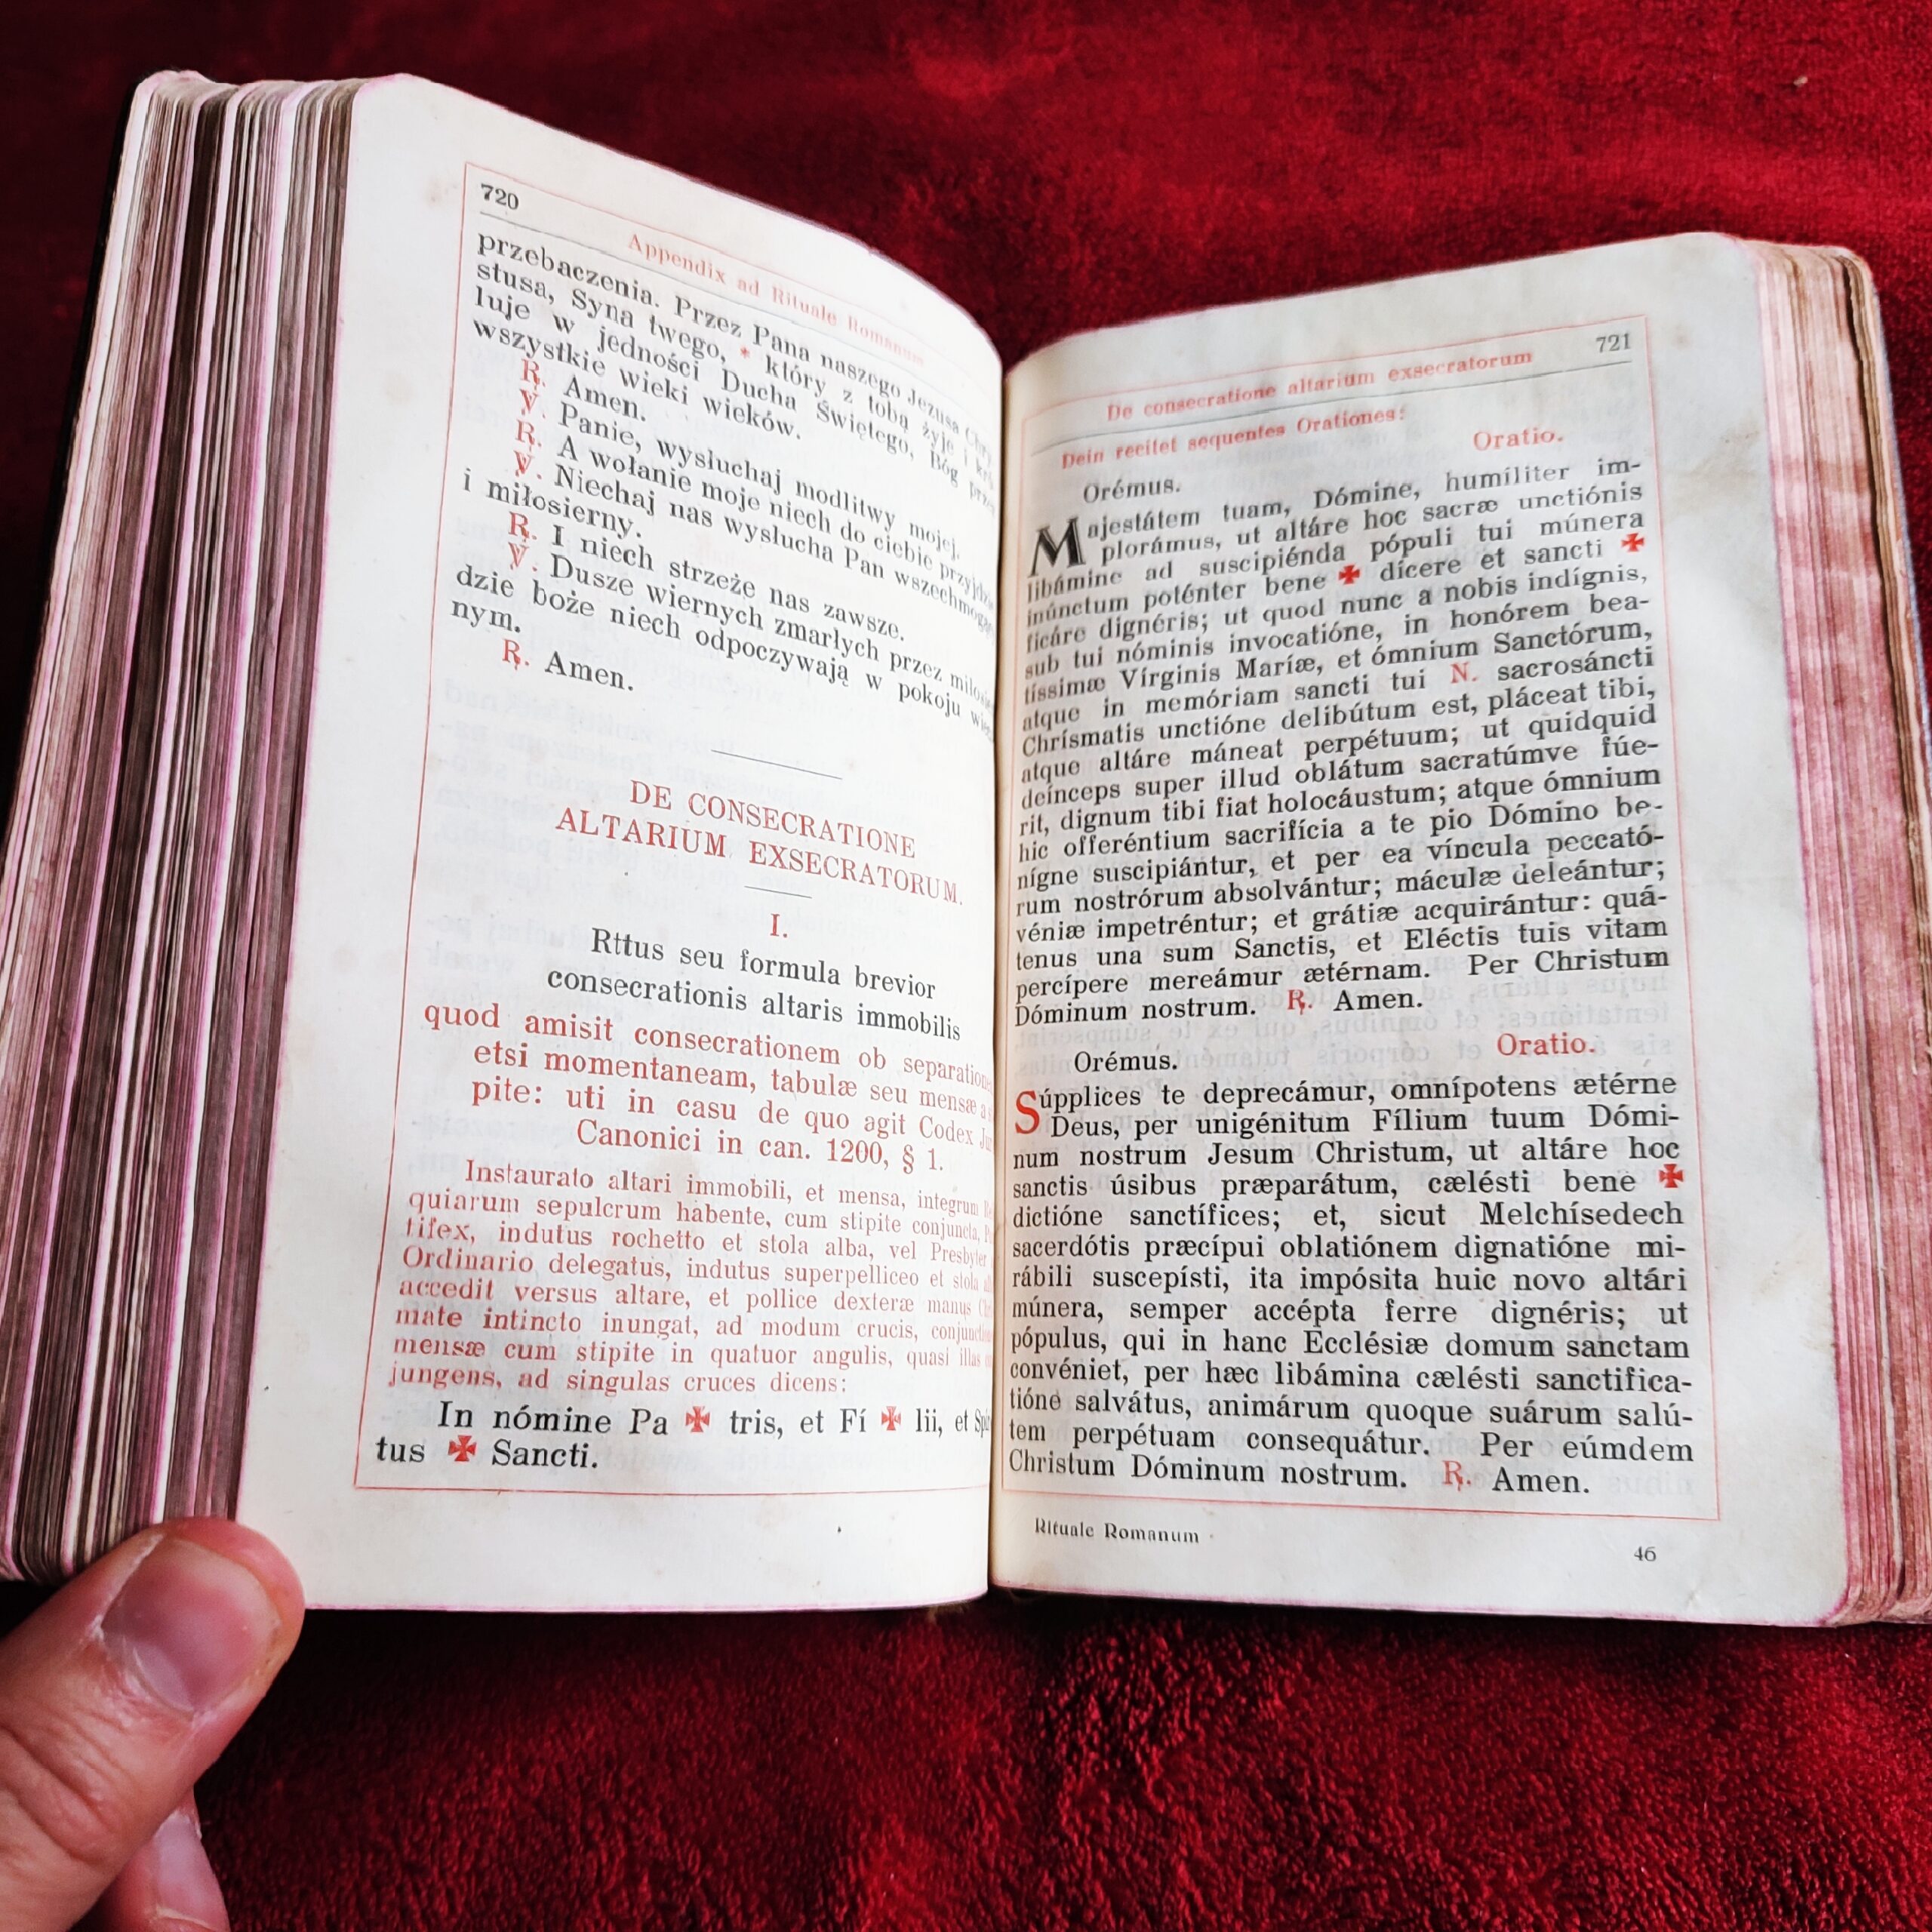 720
Appendix ad Rituale Romanum
przebaczenia. Przez Pana naszego Jezusa Chry-
stusa, Syna twego, * który z tobą żyje i kró-
luje w jedności Ducha Świętego, Bóg przez
wszystkie wieki wieków.
℟. Amen.
℣. Panie, wysłuchaj modlitwy mojej.
℟. A wołanie moje niech do ciebie przyjdzie
℣. Niechaj nas wysłucha Pan wszechmogący
i miłosierny.
℟. I niech strzeże nas zawsze.
℣. Dusze wiernych zmarłych przez miłosier-
dzie boże niech odpoczywają w pokoju
nym.
℟. Amen.
DE CONSECRATIONE
ALTARIUM EXSECRATORUM.
I.
Rttus seu formula brevior
consecrationis altaris immobilis
quod amisit consecrationem ob separationem
etsi momentaneam, tabulæ seu mensæ a
pite: uti in casu de quo agit Codex
Canonici in can. 1200, § 1.
Instaurato altari immobili, et mensa, integrum
quiarum sepulcrum habente, cum stipite conjuncta,
tifex, indutus rochetto et stola alba, vel Presbyter
Ordinario delegatus, indutus superpelliceo et stola
accedit versus altare, et pollice dexteræ manus
mate intincto inungat, ad modum crucis,
mensæ cum stipite in quatuor angulis, quasi illas
jungens, ad singulas cruces dicens:
In nómine Pa ✠ tris, et Fí ✠ lii, et
tus ✠ Sancti.
721
De consecratione altarium exsecratorum
Dein recitet sequentes Orationes:
Orémus. Oratio.
Majestátem tuam, Dómine, humíliter im-
plorámus, ut altáre hoc sacræ unctiónis
libámine ad suscipiénda pópuli tui múnera
inúnctum poténter bene ✠ dícere et sancti ✠
ficáre dignéris; ut quod nunc a nobis indígnis,
sub tui nóminis invocatióne, in honórem bea-
tíssimæ Vírginis Maríæ, et ómnium Sanctórum,
atque in memóriam sancti tui N. sacrosáncti
Chrísmatis unctióne delibútum est, pláceat tibi,
atque altáre máneat perpétuum; ut quidquid
deínceps super illud oblátum sacratúmve fúe-
rit, dignum tibi fiat holocáustum; atque ómnium
hic offeréntium sacrifícia a te pio Dómino be-
nígne suscipiántur, et per ea víncula peccató-
rum nostrórum absolvántur; máculæ deleántur;
véniæ impetréntur; et grátiæ acquirántur: quá-
tenus una sum Sanctis, et Eléctis tuis vitam
percípere mereámur ætérnam. Per Christum
Dóminum nostrum. ℟. Amen.
Orémus. Oratio.
Súpplices te deprecámur, omnípotens ætérne
Deus, per unigénitum Fílium tuum Dómi-
num nostrum Jesum Christum, ut altáre hoc
sanctis úsibus præparátum, cælésti bene ✠
dictióne sanctífices; et, sicut Melchísedech
sacerdótis præcípui oblatiónem dignatióne mi-
rábili suscepísti, ita impósita huic novo altári
múnera, semper accépta ferre dignéris; ut
pópulus, qui in hanc Ecclésiæ domum sanctam
convéniet, per hæc libámina cælésti sanctifica-
tióne salvátus, animárum quoque suárum salú-
tem perpétuam consequátur. Per eúmdem
Christum Dóminum nostrum. ℟. Amen.
Rituale Romanum
46